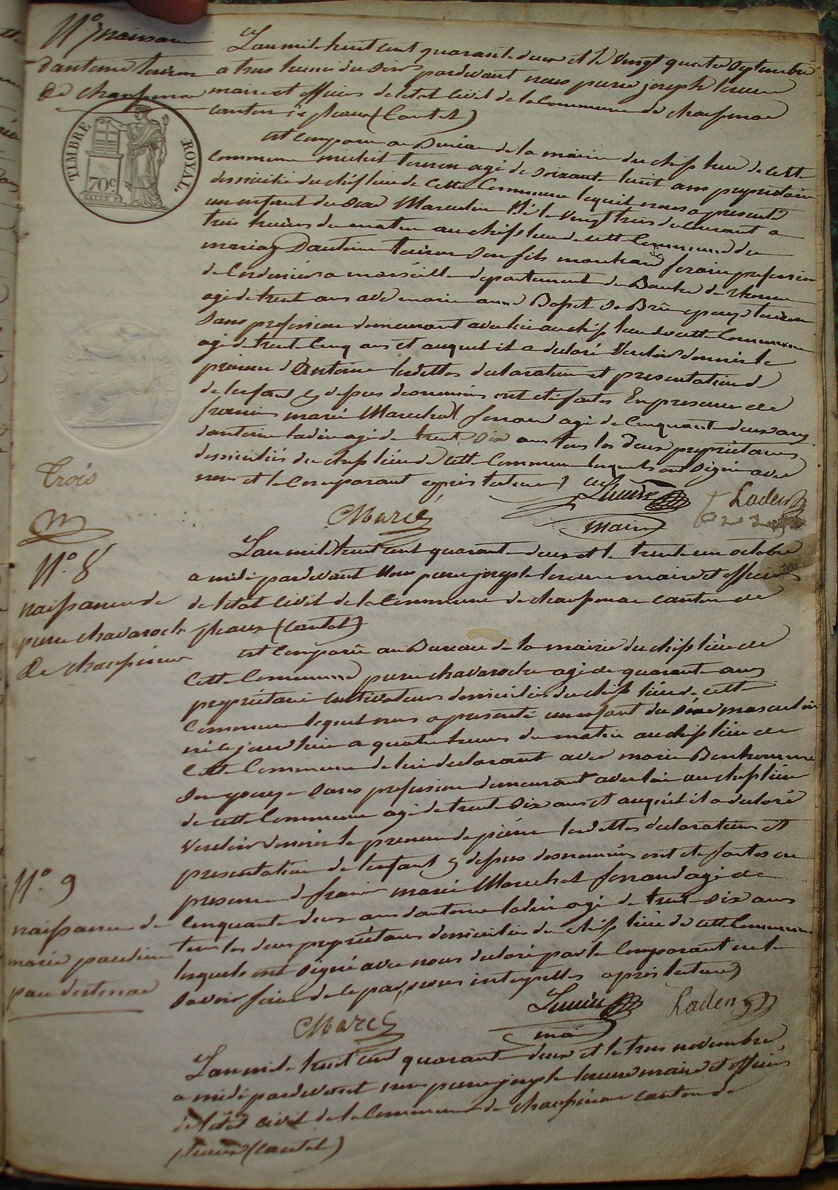 N° 7 naissance
d'antoine
de chaussenac
TIMBRE ROYAL
70c
L'an mil huit cent quarante deux et le vingt quatre Septembre
a trois heures du Soir pardevant nous pierre joseph
maire et officier de letat Civil de la Commune de chaussenac
canton de pleaux (Cantal)
est Comparu au Bureau de la mairie du chef lieu de cette
Commune agé de Soixante huit ans propriétaire
domicilié du chef lieu de cette Commune lequel nous a presenté
un enfant du Sexe Masculin Né le Vingt trois du courant a
trois heures du matin au chef lieu de cette Commune du
mariage D'antoine Son fils marchand forain profession
de a marseille departement de Bouches du Rhone
agé de trent ans avec marie anne
Sans profession demeurant avec lui au chef lieu de cette Commune
agé de trente Cinq ans et auquel il a declaré Vouloir donner le
prenom d'Antoine lesdittes declaration et presentation
de l'enfant cy dessus denommés ont eté faites En presence de
francois marie Marechal agé de Cinquante deux ans
d'antoine laden agé de trent Six ans tous les Deux propriétaires
domiciliés du chef lieu de cette Commune lesquels ont Signé avec
nous et le Comparant apres lecture
Trois
maire
Laden
N° 8
naissance de
pierre chavaroche
de chaussenac
L'an mil huit cent quarante deux et le trente un octobre
a midi pardevant Nous pierre joseph maire et officier
de letat Civil de la Commune de chaussenac canton de
pleaux (Cantal)
est Comparu au Bureau de la mairie du chef lieu de
Cette Commune pierre chavaroche agé de quarante ans
propriétaire Cultivateur domicilié du chef lieu de cette
Commune lequel nous a presenté un enfant du Sexe masculin
né le jour d'hier a quatre heures du matin au chef lieu de
Cette Commune de lui declarant avec marie Bonhomme
Son epouse Sans profession demeurant avec lui au chef lieu
de cette Commune agé de trent Six ans et auquel il a declaré
Vouloir donner le prenom de pierre lesdittes declaration et
presentation de l'enfant cy dessus denommés ont eté faites en
presence de francois marie Marechal agé de
Cinquante deux ans d'antoine ladin agé de trent Six ans
tous les deux propriétaires domiciliés du chef lieu de cette Commune
lesquels ont Signé avec nous declaré par le Comparant ne le
Savoir faire de ce par nous interpellé apres lecture
maire
Laden
N° 9
naissance de
marie pauline
L'an mil huit cent quarante deux et le trois novembre
a midi pardevant nous pierre joseph maire et officier
de l'etat civil de la Commune de chaussenac canton de
pleaux (Cantal)